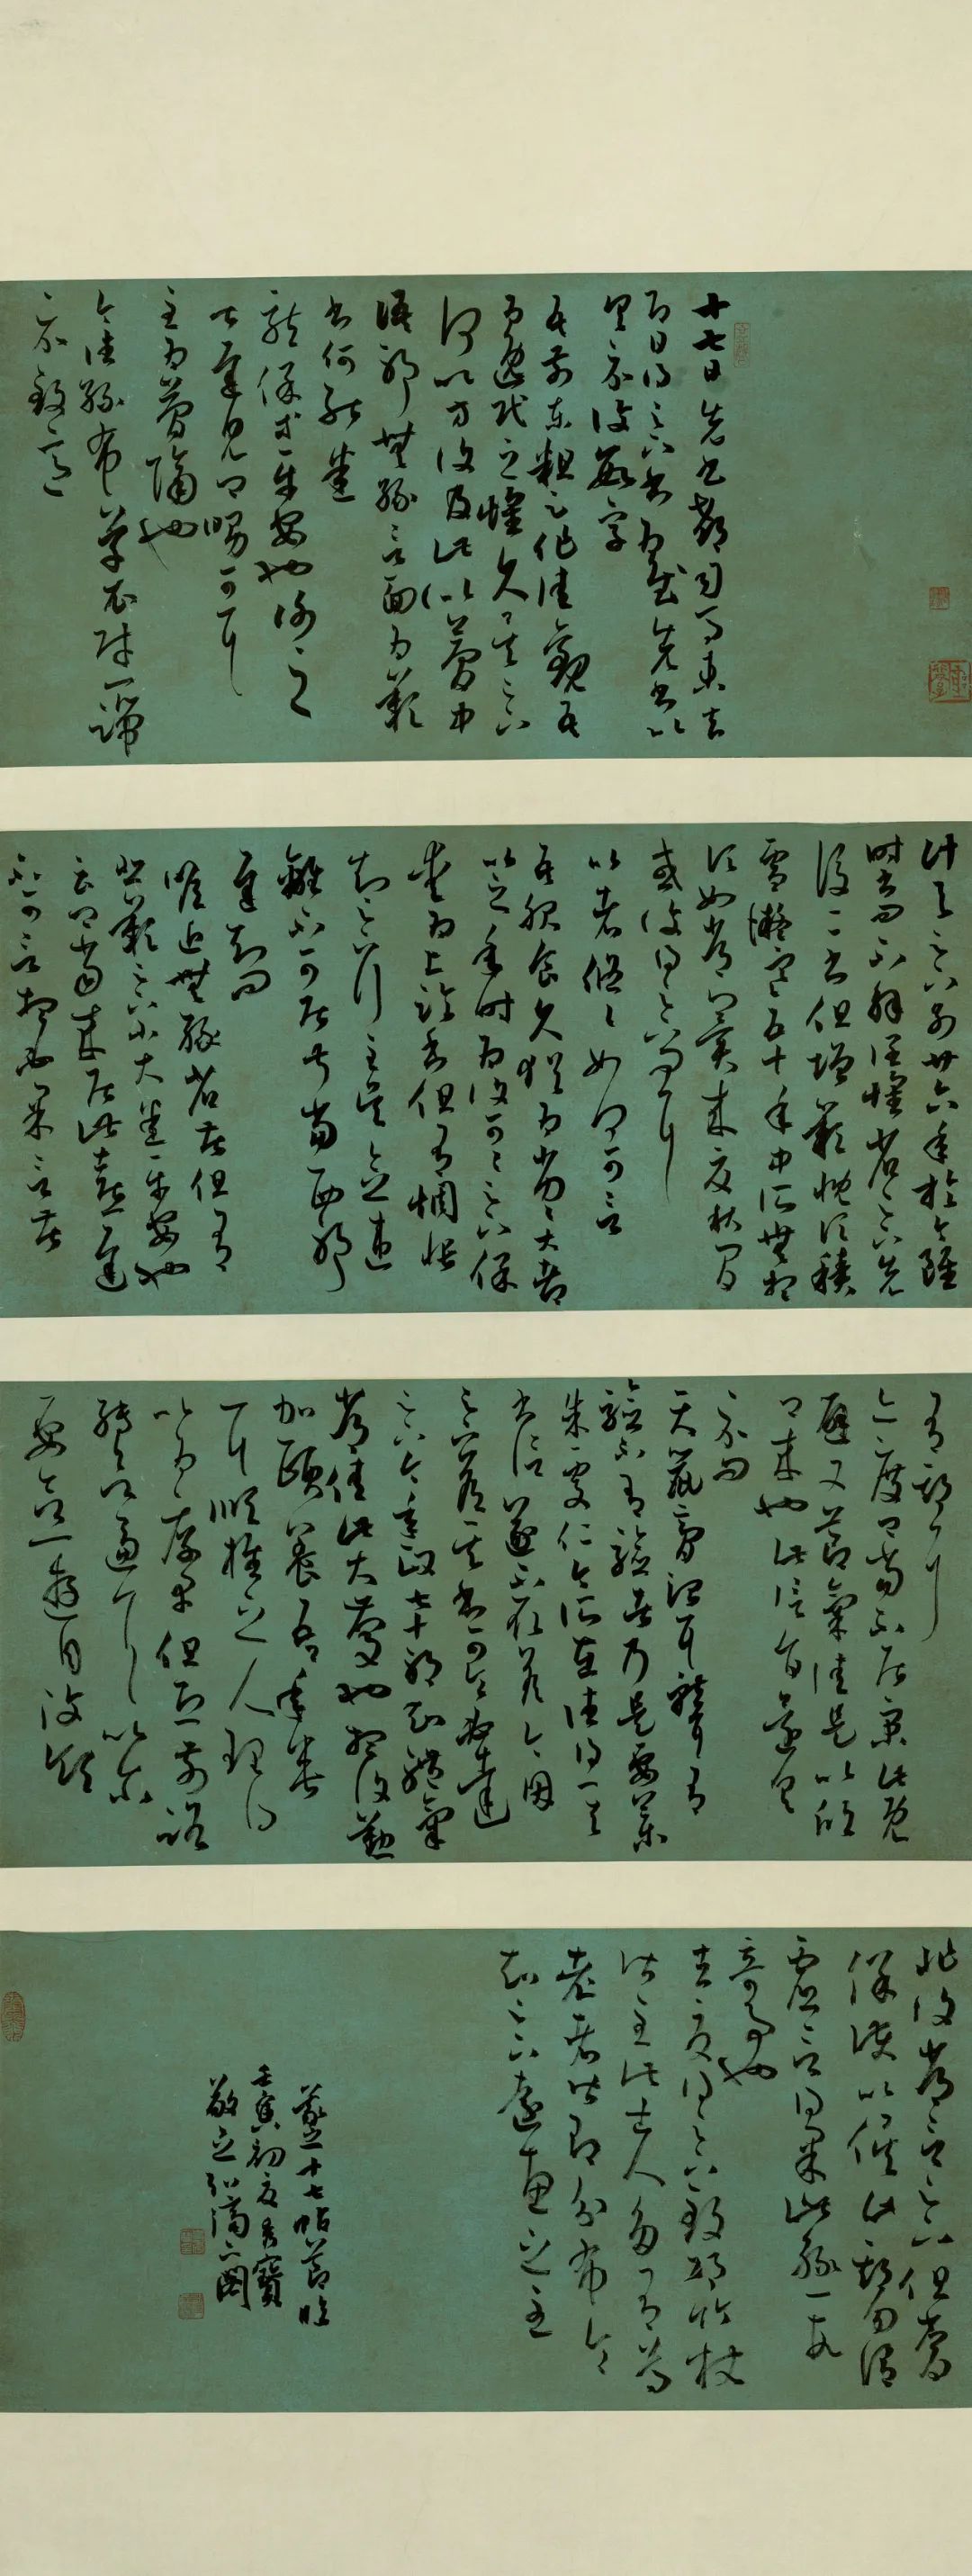 十七日先書郗司馬未去
即日得足下書為慰先書以
具示復數字
吾前東粗足作佳觀吾
為逸民之懷久矣足下
何以方復及此似夢中
語耶無緣言面為歎
書何能悉
龍保等平安也謝之
甚遲見卿舅可耳
至為簡隔也
今往絲布單衣財一端
示致意
計與足下別廿六年於今雖
時書問不解闊懷省足下先
後二書但增歎慨頃積
雪凝寒五十年中所無想
頃如常冀來夏秋間
或復得足下問耳
比者悠悠如何可言
吾服食久猶為劣劣大都
比之年時為復可可足下保
愛為上臨書但有惆悵
知足下行至吳念違
離不可居叔當西耶
遲知問
瞻近無緣省告但有
悲歎足下小大悉平安也
云卿當來居此喜遲
不可言想必果言告
有期耳
亦度卿當不居京此既
避又節氣佳是以欣
卿來也此信旨還具
示問
天鼠膏治耳聾有
驗不有驗者乃是要藥
朱處仁今所在往得其
書信遂不取答今因
足下答其書可令必達
足下今年政七十耶知體氣
常佳此大慶也想復勤
加頤養吾年垂
耳順推之人理得
以為厚幸但恐前路
轉欲逼耳以爾
要欲一遊目汶領
非復常言足下但當
保護以俟此期勿謂
虛言得果此緣一段
奇事也
去夏得足下致邛竹杖
皆至此士人多有尊
老者皆即分布令
知足下遠惠之至
十七帖節臨
壬寅初夏